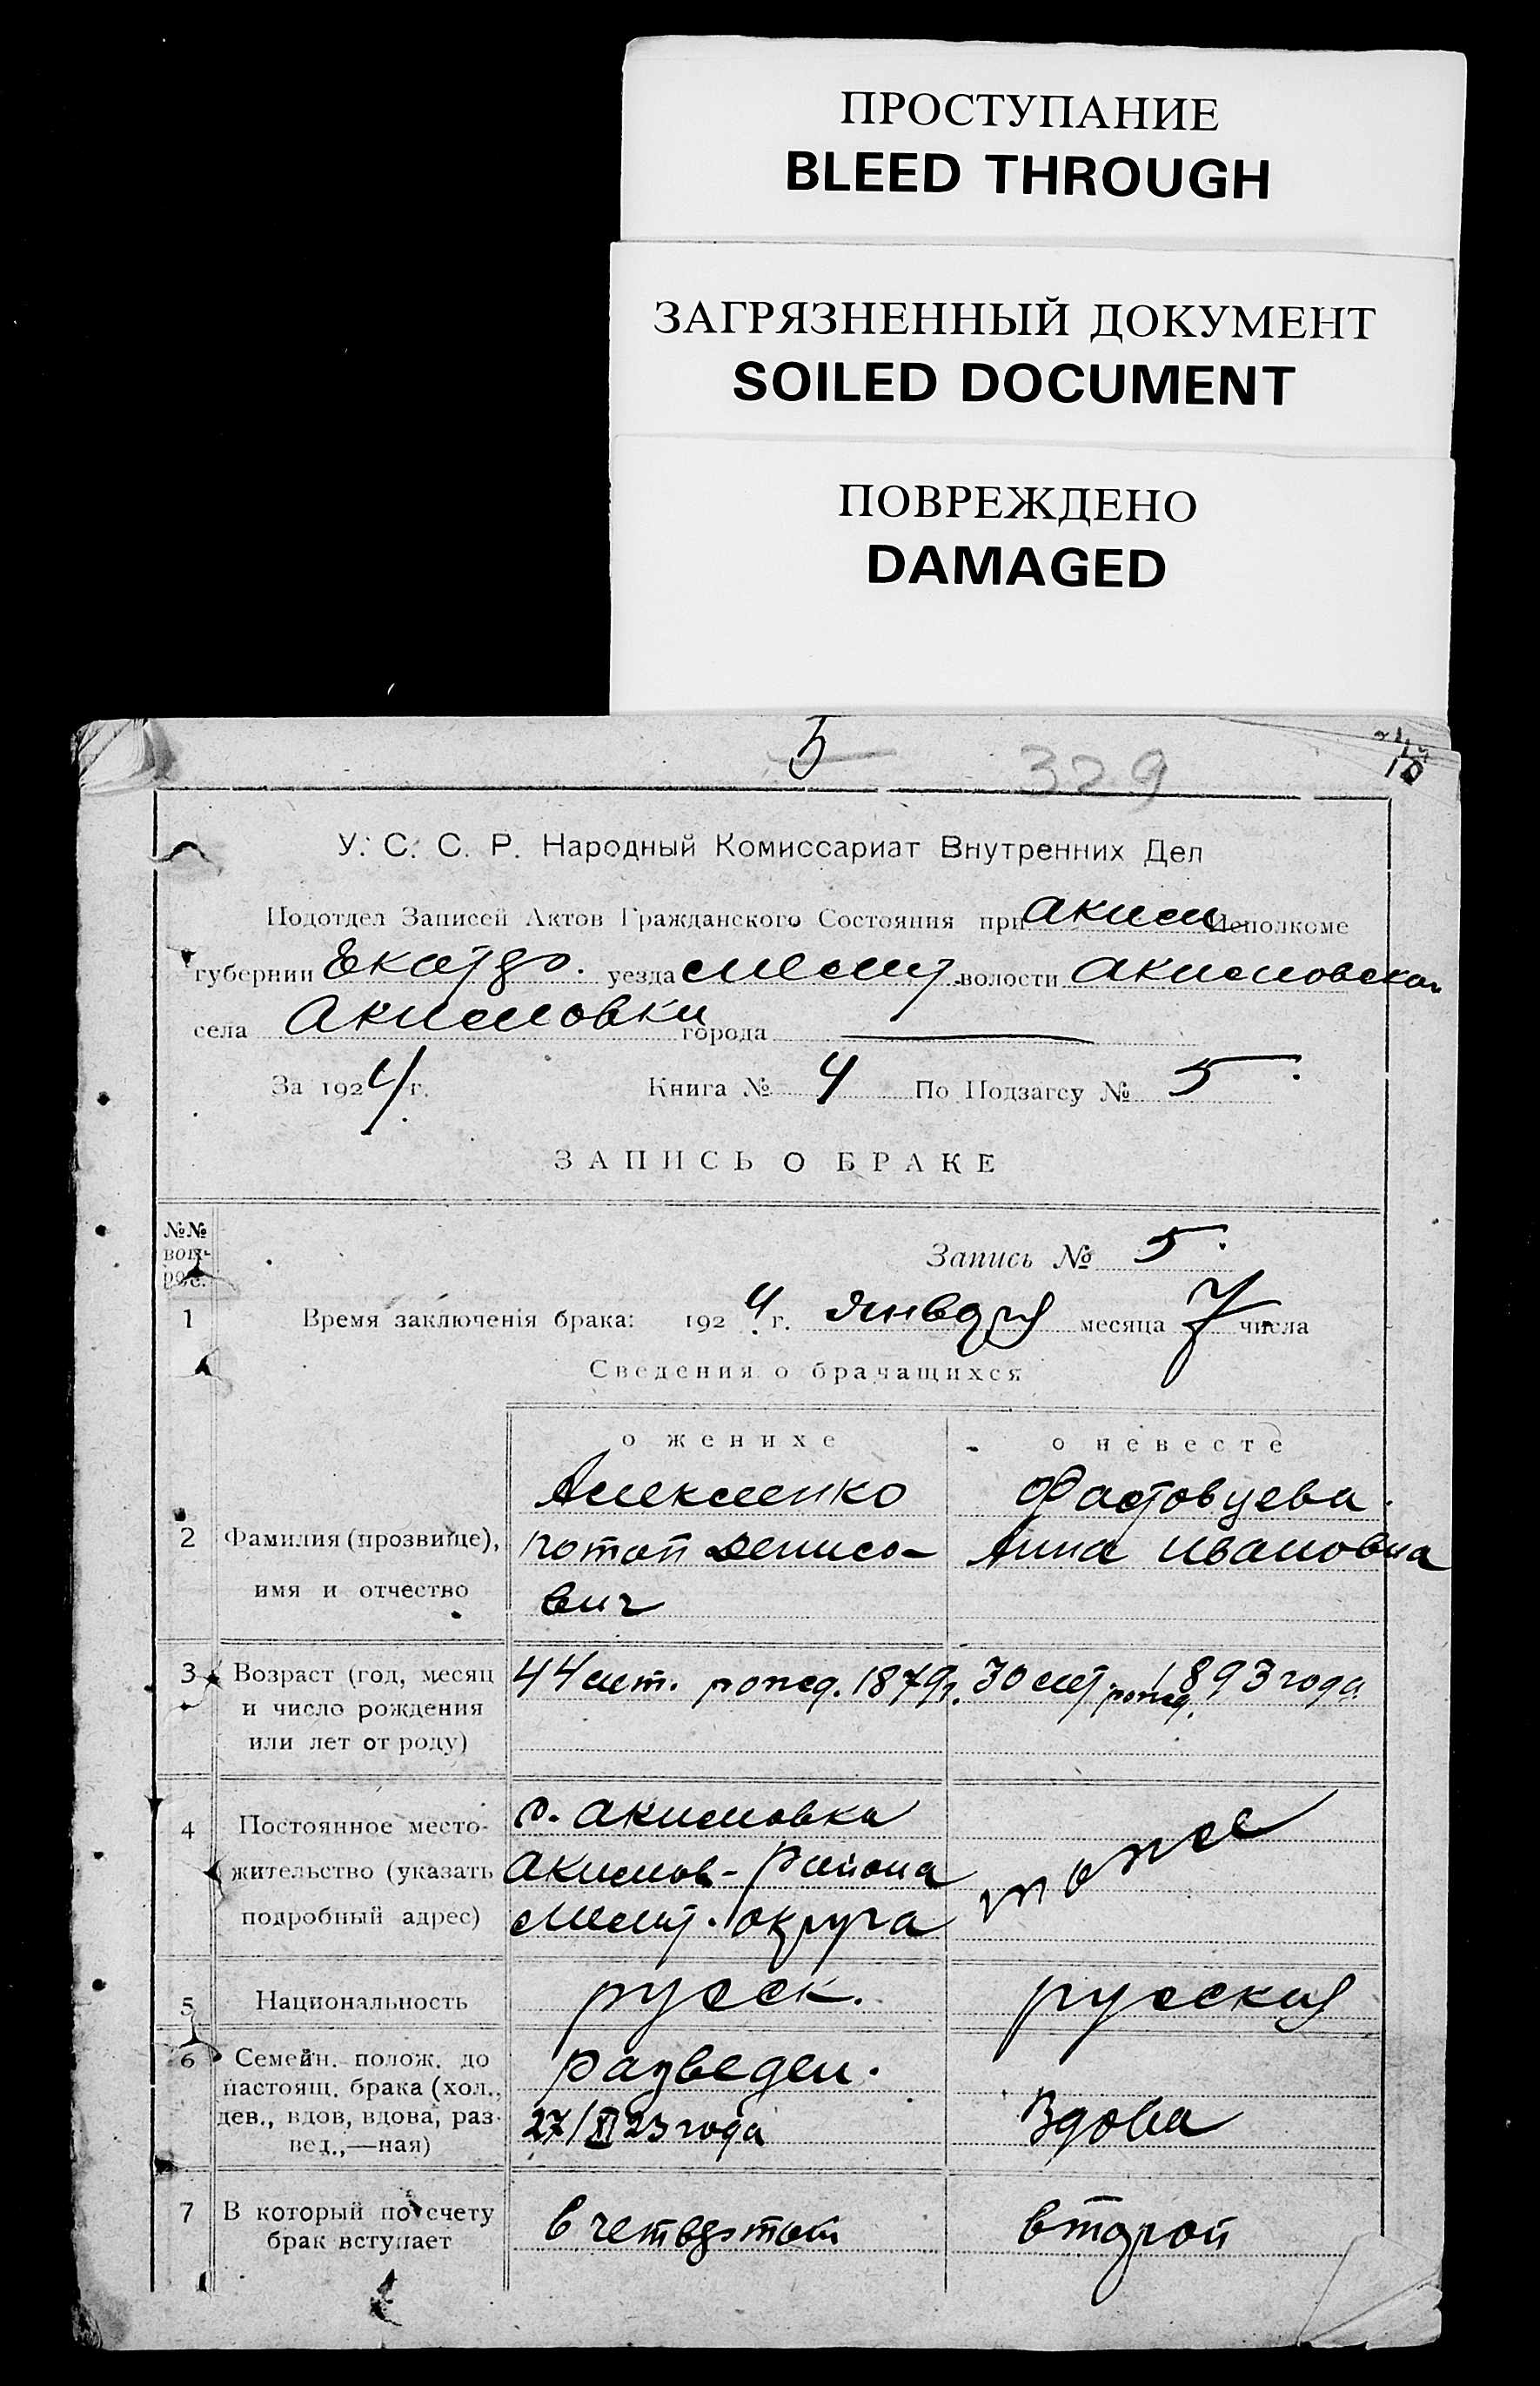 ПРОСТУПАНИЕ
BLEED THROUGH
ЗАГРЯЗНЕННЫЙ ДОКУМЕНТ
SOILED DOCUMENT
ПОВРЕЖДЕНО
DAMAGED
5
329
У. С. С. Р. Народный Комиссариат Внутренних Дел
Подотдел Записей Актов Гражданского Состояния при Аким Исполкоме
губернии Екатер. уезда Мелит. волости Акимовской
села Акимовки города
За 1924 г. Книга № 4 По Подзагсу № 5.
ЗАПИСЬ О БРАКЕ
№№ вопрос.
Запись № 5.
1 Время заключенiя брака: 1924 г. января месяца 7 числа
Сведения о брачащихся
о женихе о невесте
Алексенко Фастовцева.
2 Фамилия (прозвище), Потап Денисо- Анна Ивановна
имя и отчество вич
3 Возраст (год, месяц 44 лет. рожд. 1879 г. 30 лет рожд. 1893 года
и число рождения
или лет от роду)
с. Акимовка
4 Постоянное место- тоже
жительство (указать Акимов- района
подробный адрес) Мелит. округа
5 Национальность русск. русская
6 Семейн. полож. до разведен.
настоящ. брака (хол.,
дев., вдов, вдова, раз- 27/XI 23 года Вдова
вед.,—ная)
7 В который по счету в четвертый второй
брак вступает